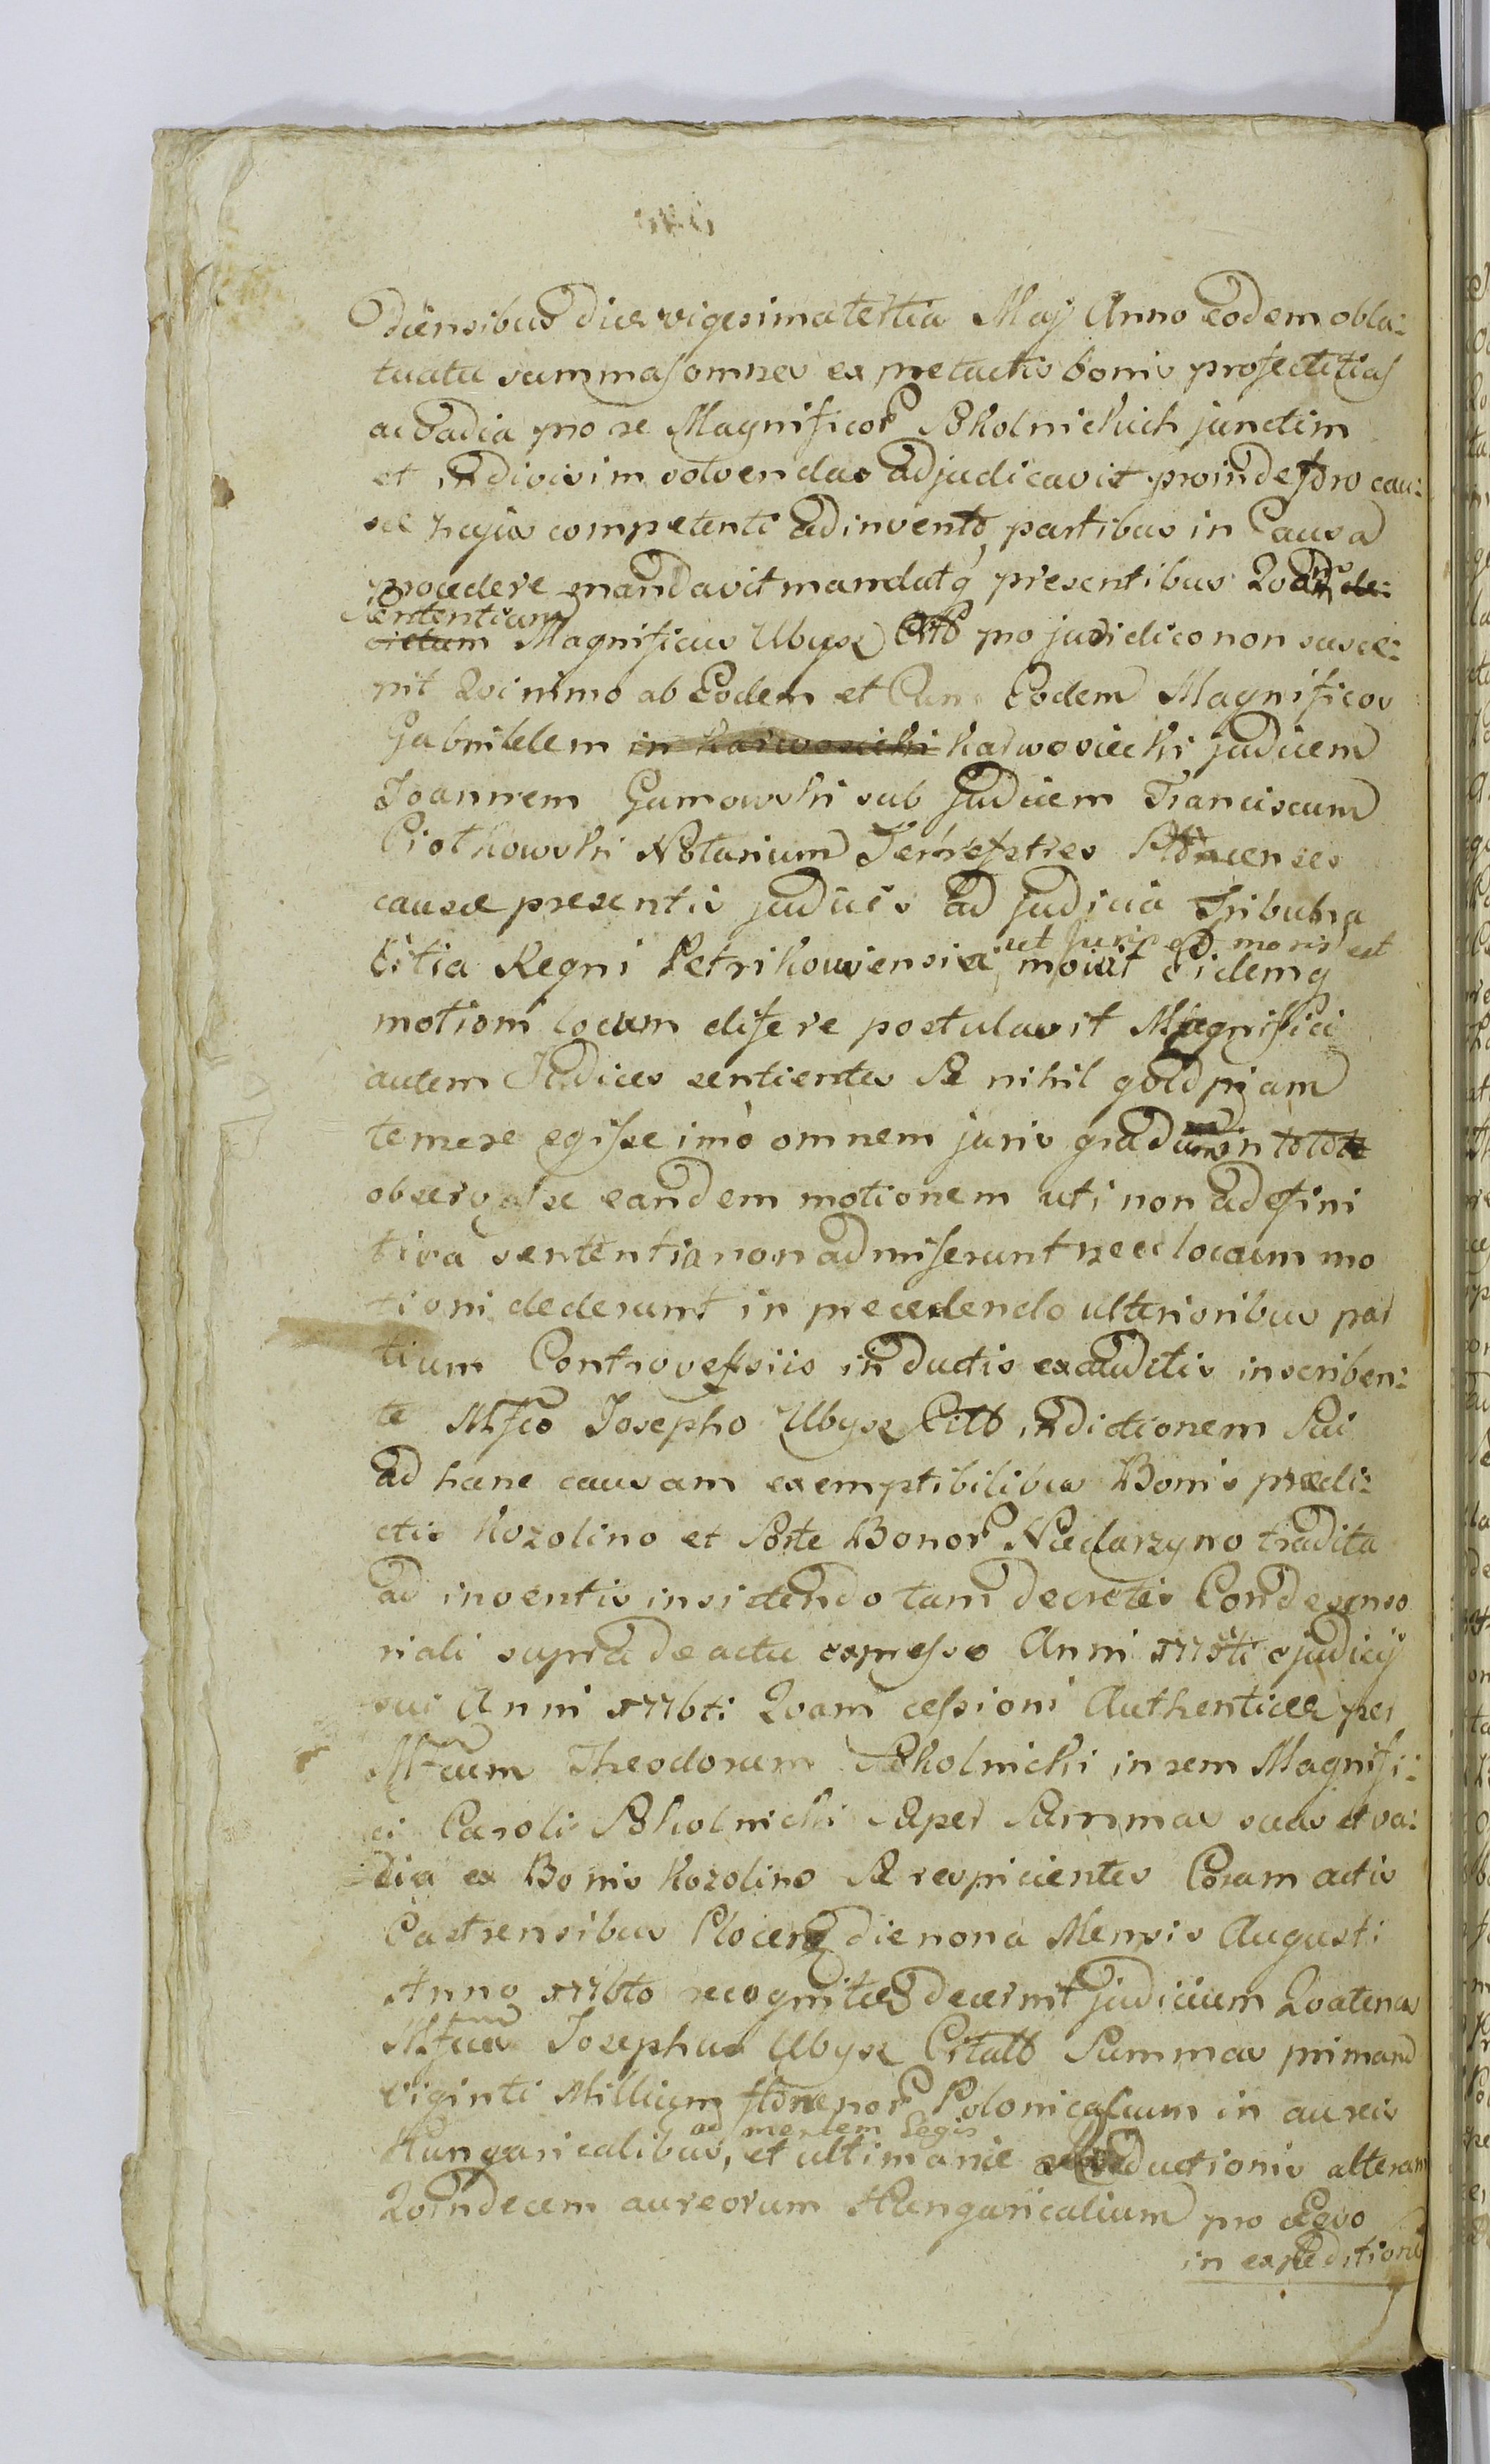 diensibus die vigesima tertia Maij Anno eodem obla:
tuatu summas omnes ex pretactis bonis profectitias
ac vadia pro se Magnificor Skolnickich junctim
et indivisim solvendas adjudicavit proinde foro cau:
sæ hujus competenti adinvento, partibus in Causa
procedere mandavit mandatq presentibus Quam de:
Sententiam
cretum Magnificus Ubysz Citt pro juridico non susce:
pit Quinimo ab Eodem et Cum Eodem Magnificos
Gabrielem in Karwosiecki Karwosiecki judicem
Joannem Gumowski sub Judicem Franciscum
Piotkowski Notarium Terrestres Plocenses
causæ presentis judices ad judicia Tribuna
ut Juris et moris est
litia Regni Petrikoviensia, movit eidemq
motioni locum defere postulavit Magnifici
autem Judices sentientes Se nihil quidpiam
temere egisse imo omnem juris gradum in toto
observasse eandem motionem uti non a defini
tiva sententia non admiserunt nec locum mo
tioni dederunt in precedendo ulterioribus par
tium Controversiis inductis exauditis inscriben:
te Mfco Josepho Ubysz Citto indictionem Sui
ad hanc causam exemptibilibus Bonis prædi:
ctis Kozolino et Sorte Bonor Niedarzyno tradita
ad inventis insistendo tam decretis Condescenso
riali supra de actu expresso Anni 1775ti judicij
sui Anni 1776ti Quam cessioni Authenticæ per
Mfcum Theodorum Skolnicki in rem Magnifi:
ci Caroli Skolnicki super Summas suas et va:
dia ex Bonis Kozolino Se respicientes Coram actis
Castrensibus Plocens die nona Mensis Augusti
Anno 1776to recognitæ decernit judicium Quatenus
Mfcus Josephus Ubysz Citatt Summas primam
Viginti Millium florenor Polonicalium in aureis
ad mentem Legis
Hungaricalibus, et ultimariæ Reductionis alteram
Quindecem aureorum Hungaricalium pro Equo
in expeditione